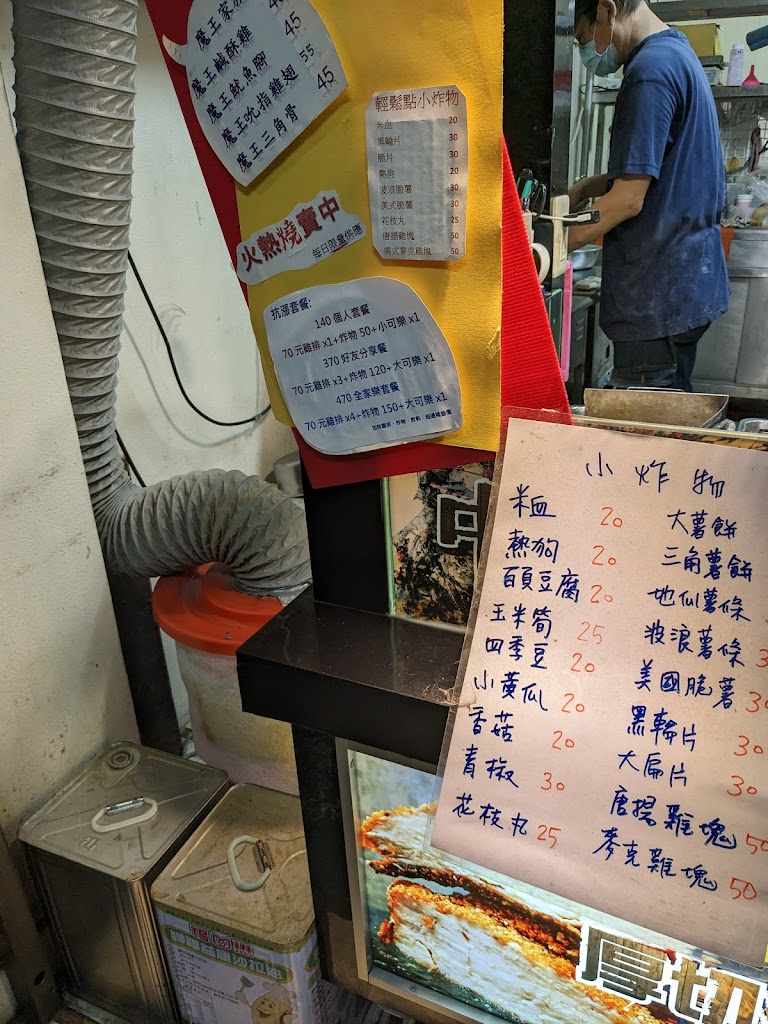 魔王家族
魔王鹹酥雞 45
魔王魷魚腳 45
魔王吮指雞翅 55
魔王三角骨 45
輕鬆點小炸物
米血 20
黑輪片 30
脆片 30
熱狗 20
波浪脆薯 30
美式脆薯 30
花枝丸 25
唐揚雞塊 50
美式麥克雞塊 50
火熱燒賣中
每日限量供應
抗漲套餐:
140 個人套餐
70元雞排 x1+炸物 50+小可樂 x1
370 好友分享餐
70元雞排 x3+炸物 120+大可樂 x1
470 全家樂套餐
70元雞排 x4+炸物 150+大可樂 x1
小炸物
米血 20
熱狗 20
百頁豆腐 20
玉米筍 25
四季豆 20
小黃瓜 20
香菇 20
青椒 30
花枝丸 25
大薯餅
三角薯餅
地瓜薯條
波浪薯條 3
美國脆薯 30
黑輪片 30
大扁片 30
唐揚雞塊 50
麥克雞塊 50
厚切